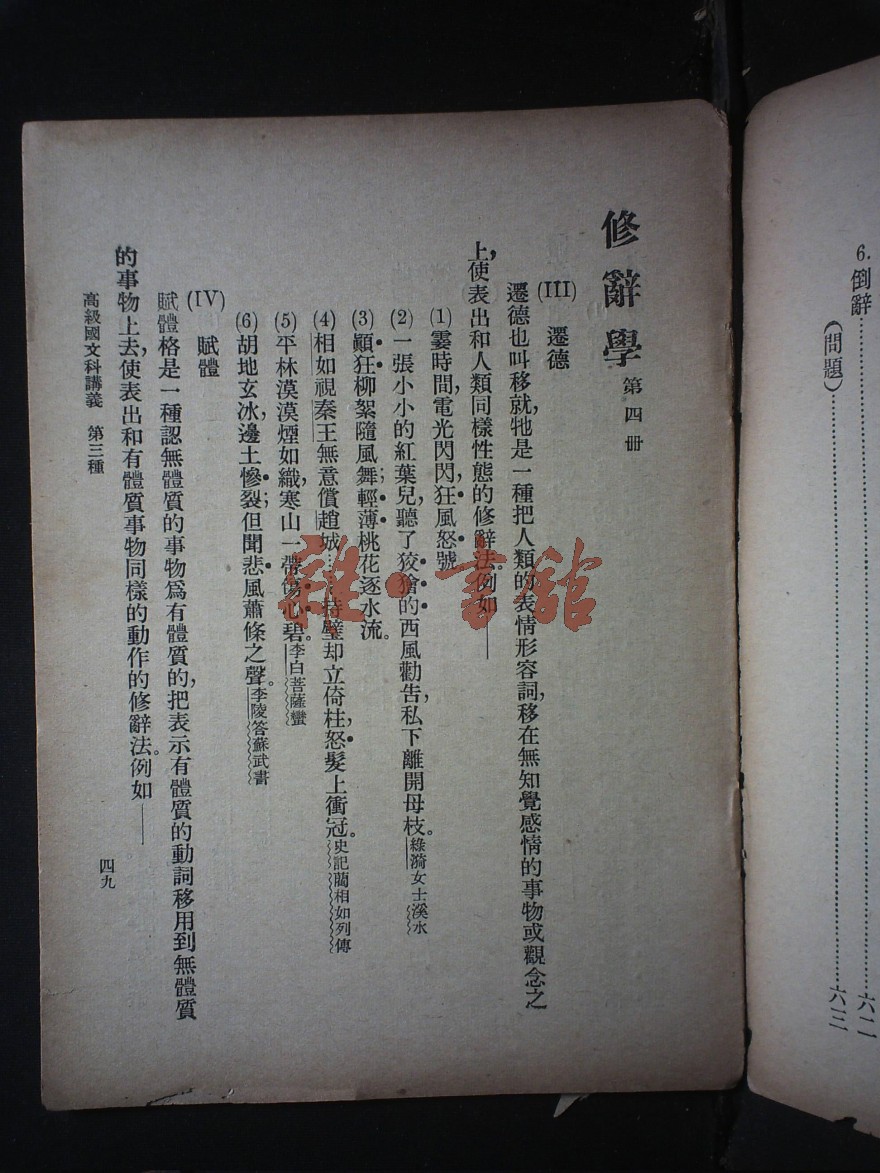 6. 倒辭……六二
(問題)……六三
修辭學 第四册
(III) 遷德
遷德也叫移就,牠是一種把人類的表情形容詞,移在無知覺感情的事物或觀念之
上,使表出和人類同樣性態的修辭法。例如——
(1) 霎時間,電光閃閃,狂風怒號
(2) 一張小小的紅葉兒,聽了狡獪的西風勸告,私下離開母枝。綠漪女士溪水
(3) 顚狂柳絮隨風舞;輕薄桃花逐水流。
(4) 相如視秦王無意償趙城……持璧却立倚柱,怒髮上衝冠。史記藺相如列傳
(5) 平林漠漠煙如織,寒山一帶傷心碧。李白菩薩蠻
(6) 胡地玄冰,邊土慘裂;但聞悲風蕭條之聲。李陵答蘇武書
(IV) 賦體
賦體格是一種認無體質的事物爲有體質的,把表示有體質的動詞移用到無體質
的事物上去,使表出和有體質事物同樣的動作的修辭法。例如——
高級國文科講義 第三種
四九
雜·書館